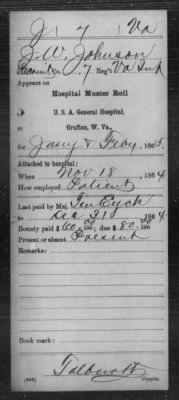 J 7 Va
J. W. Johnson
7 Reg't Va Inf
Appears on
Hospital Muster Roll
U. S. A. General Hospital,
Grafton, W. Va.,
for Jany & Feby, 1865.
Attached to hospital:
When Nov 18, 1864
How employed Patient
Last paid by Maj. Ten Eyck
to Dec 31, 1864
Bounty paid $60 00/100; due $80 00/100
Present or absent Present
Remarks:
Book mark:
Talbutt
Copyist.